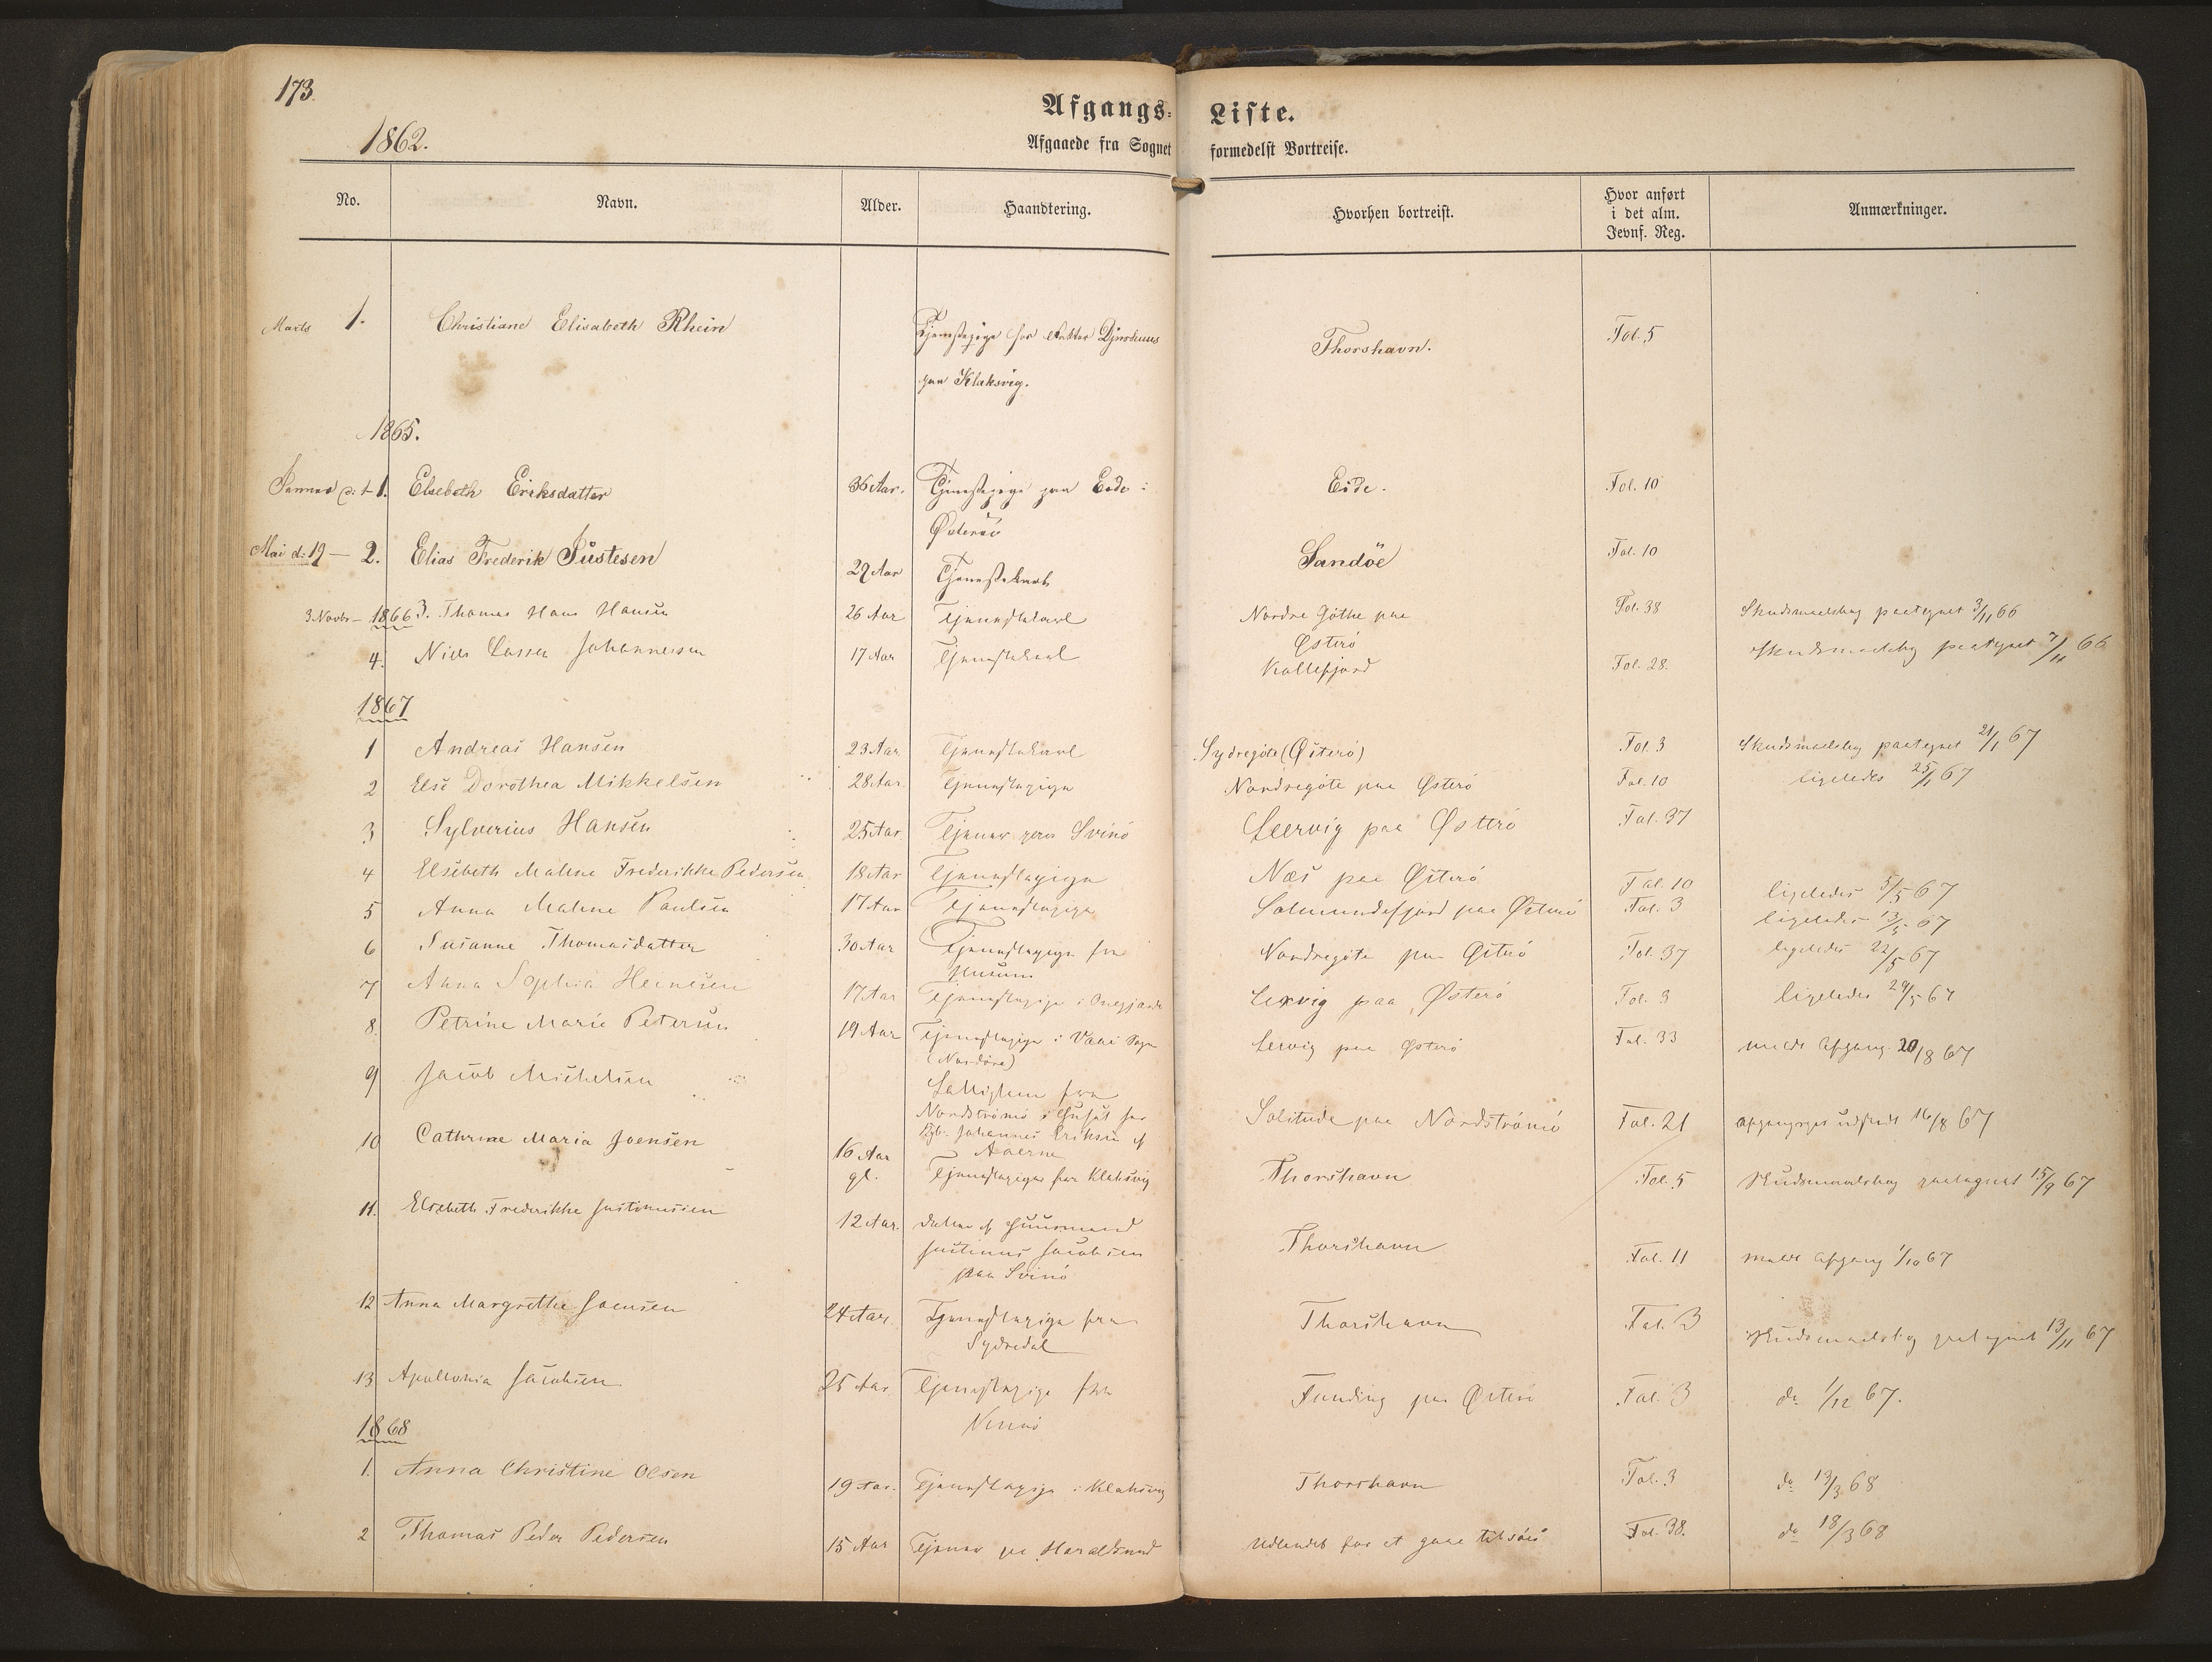 173.
Afgangs- Liste.
1862.
Afgaaede fra Sognet formedelst Bortreise.
No. Navn. Alder. Haandtering. Hvorhen bortreist. Hvor anført i det alm. Jevnf. Reg. Anmærkninger.
Marts 1. Christiane Elisabeth Rhein Tjenestepige hos Thorshavn. Fol. 5
paa Klaksvig.
1865.
1. Elsebeth Eriksdatter 36 Aar. Tjenestepige paa Eide: Eide. Fol. 10
Østerøe
Mai d: 19 — 2. Elias Frederik Justesen 29 Aar Tjenestekarl Sandöe Fol. 10
3 Novbr – 1866 3. Thomas Hans Hansen 26 Aar Tjenestekarl Nordre Göthe paa Fol. 38 Skudsmaalsbog paategnet 3/11 66
Østerö
4. Niels Lassen Johannessen 17 Aar Tjenestekarl Kollefjord Fol. 28. Skudsmaalsbog paategnet 7/11 66
1867
1 Andreas Hansen 23 Aar Tjenestekarl Sydregöte (Østerö) Fol. 3 Skudsmaalsbog paategnet 21/1 67
2 Else Dorothea Mikkelsen 28 Aar Tjenestepige Nordregöte paa Østerö Fol. 10 ligeledes 25/1 67
3 Sylverius Hansen 25 Aar Tjener paa Svinö Leervig paa Østerö Fol. 37
4 Elsebeth Malene Frederikke Pedersen 18 Aar Tjenestepige Næs paa Østerö Fol. 10 ligeledes 5/5 67
5 Anna Malene Paulsen 17 Aar Tjenestepige Salmundefjord paa Østerö Fol. 3 ligeledes 13/5 67
6 Susanne Thomasdatter 30 Aar Tjenestepige fra Nordregöte paa Østerö Fol. 37 ligeledes 22/5 67
Husum
7 Anna Sophia Heinesen 17 Aar Tjenestepige i Lervig paa Østerö Fol. 3 ligeledes 29/5 67
8. Petrine Marie Petersen 19 Aar Tjenestepige i Lervig paa Østerö Fol. 33 meldt Afgang 20/8 67
(Norderöe)
9 Jacob Michelsen fra
Nordströmö i Huset hos Solitude paa Nordströmö Fol. 21 16/8 67
Johannes Eriksen af
10 Cathrine Maria Joensen 16 Aar gl. Tjenestepige fra Klaksvig Thorshavn Fol. 5 Skudsmaalsbog paategnet 15/9 67
11. Elsebeth Frederikke Justinussen 12 Aar. datter af Huusmand Thorshavn Fol. 11 meldt Afgang 1/10 67
Justinus Jacobsen
paa Svinö
12 Anna Margrethe Joensen 24 Aar. Tjenestepige fra Thorshavn Fol. 3 Skudsmaalsbog paategnet 13/11 67
Sydredal
13 Apollonia Jacobsen 25 Aar. Tjenestepige fra Funding paa Østerö Fol. 3 do 1/12 67.
1868
1. Anna Christine Olsen 19 Aar. Tjenestepige i Klaksvig Thorshavn Fol. 3 do 13/3 68
2 Thomas Peder Pedersen 15 Aar Tjener paa Haraldsund Udlandet for at gaae tilsöes Fol. 38. do 18/3 68